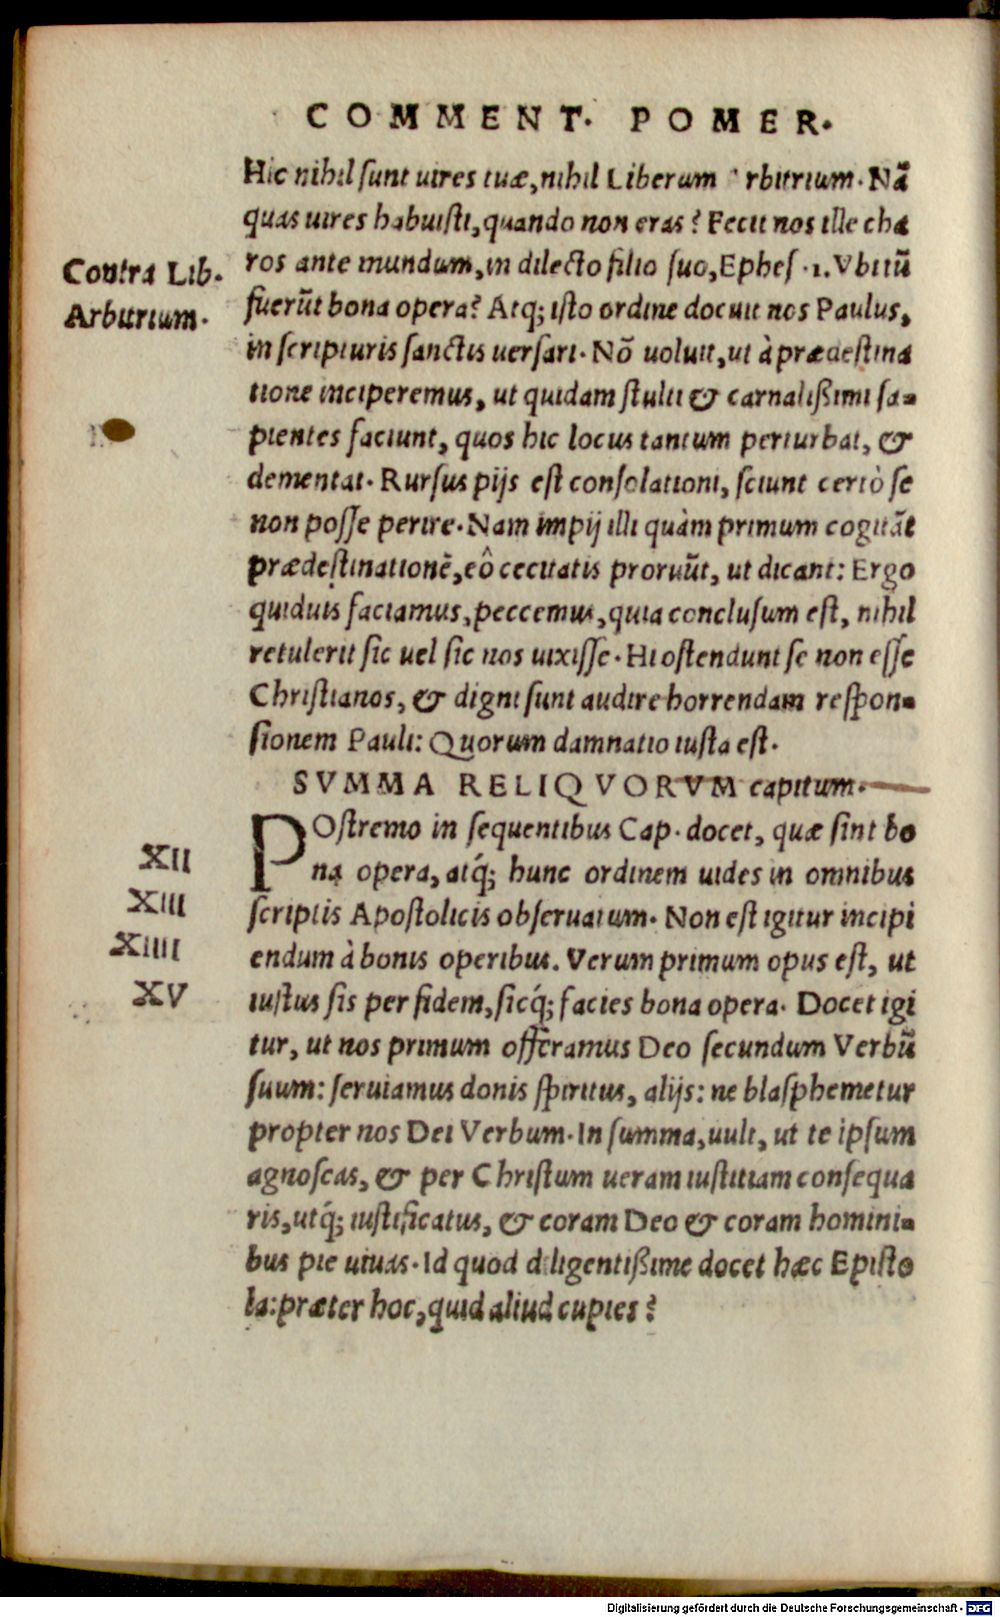 COMMENT. POMER.
Hic nihil sunt uires tuæ, nihil Liberum rbitrium. Nã
quas uires habuisti, quando non eras? Fecit nos ille cha
ros ante mundum, in dilecto filio suo, Ephes. 1. Vbi tũ
fuerũt bona opera? Atq; isto ordine docuit nos Paulus,
in scripturis sanctis uersari. Nõ uoluit, ut à prædestina
tione inciperemus, ut quidam stulti & carnalißimi sa-
pientes faciunt, quos hic locus tantum perturbat, &
dementat. Rursus pijs est consolationi, sciunt certò se
non posse perire. Nam impij illi quàm primum cogitãt
prædestinationẽ, eô cecitatis proruũt, ut dicant: Ergo
quiduis faciamus, peccemus, quia conclusum est, nihil
retulerit sic uel sic nos uixisse. Hi ostendunt se non esse
Christianos, & digni sunt audire horrendam respon-
sionem Pauli: Quorum damnatio iusta est.
Contra Lib.
Arbitrium.
SVMMA RELIQVORVM capitum.
POstremo in sequentibus Cap. docet, quæ sint bo
na opera, atq́; hunc ordinem uides in omnibus
scriptis Apostolicis obseruatum. Non est igitur incipi
endum à bonis operibus. Verum primum opus est, ut
iustus sis per fidem, sicq́; facies bona opera. Docet igi
tur, ut nos primum offeramus Deo secundum Verbũ
suum: seruiamus donis spiritus, alijs: ne blasphemetur
propter nos Dei Verbum. In summa, uult, ut te ipsum
agnoscas, & per Christum ueram iustitiam consequa
ris, utq́; iustificatus, & coram Deo & coram homini-
bus pie uiuas. Id quod diligentißime docet hæc Episto
la: præter hoc, quid aliud cupies?
XII
XIII
XIIII
XV
Digitalisierung gefördert durch die Deutsche Forschungsgemeinschaft - DFG